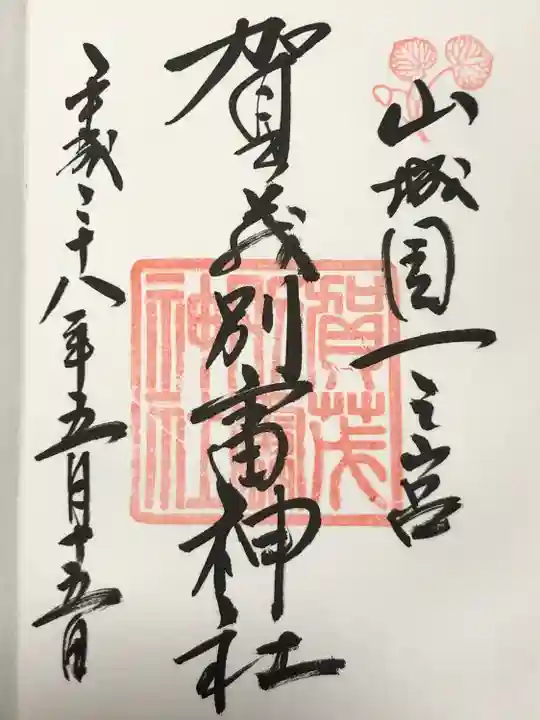 山城國一之宮
賀茂別雷神社
平成二十八年五月十五日
賀茂
別雷
神社